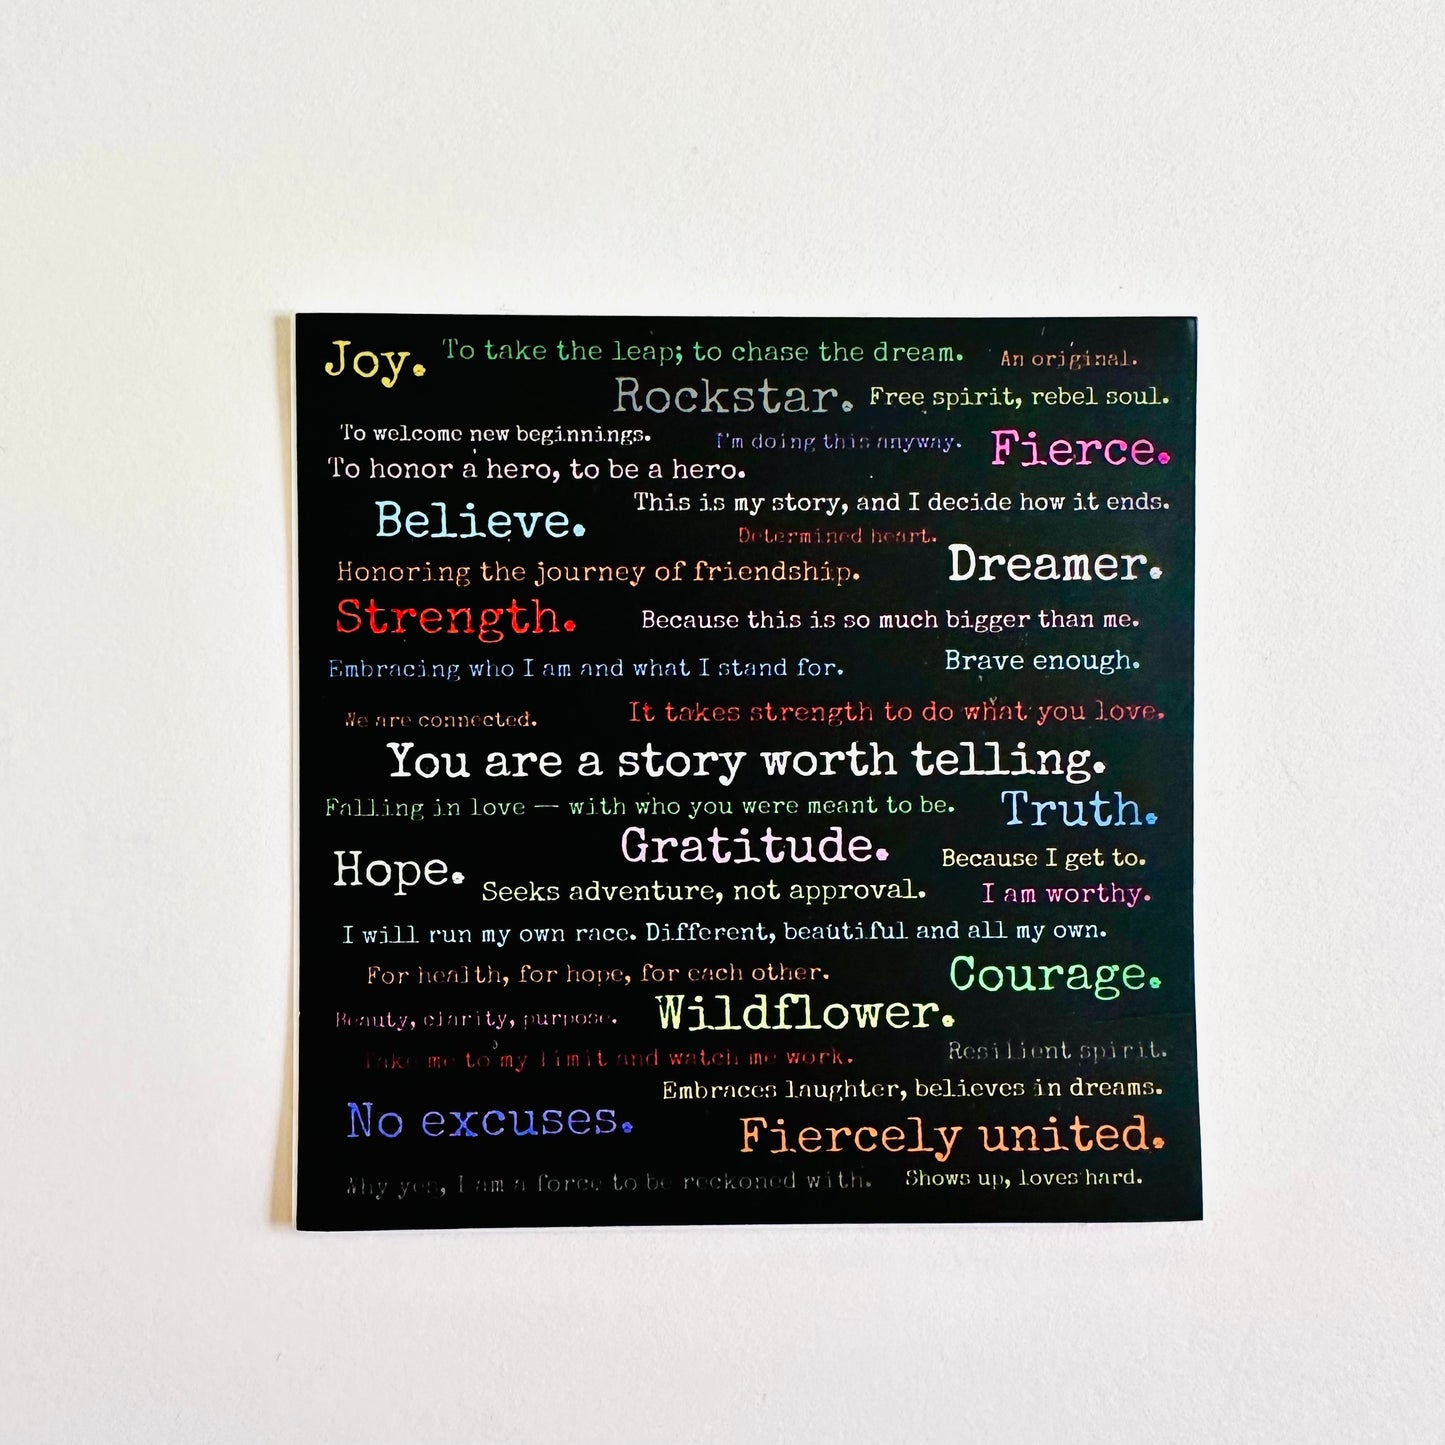 Joy. To take the leap; to chase the dream. An original.
Rockstar. Free spirit, rebel soul.
To welcome new beginnings. I'm doing this anyway. Fierce.
To honor a hero, to be a hero.
This is my story, and I decide how it ends.
Believe.
Determined heart.
Honoring the journey of friendship. Dreamer.
Strength. Because this is so much bigger than me.
Embracing who I am and what I stand for. Brave enough.
We are connected. It takes strength to do what you love.
You are a story worth telling.
Falling in love — with who you were meant to be. Truth.
Gratitude. Because I get to.
Hope. Seeks adventure, not approval. I am worthy.
I will run my own race. Different, beautiful and all my own.
For health, for hope, for each other. Courage.
Beauty, clarity, purpose. Wildflower.
Take me to my limit and watch me work. Resilient spirit.
Embraces laughter, believes in dreams.
No excuses. Fiercely united.
Why yes, I am a force to be reckoned with. Shows up, loves hard.